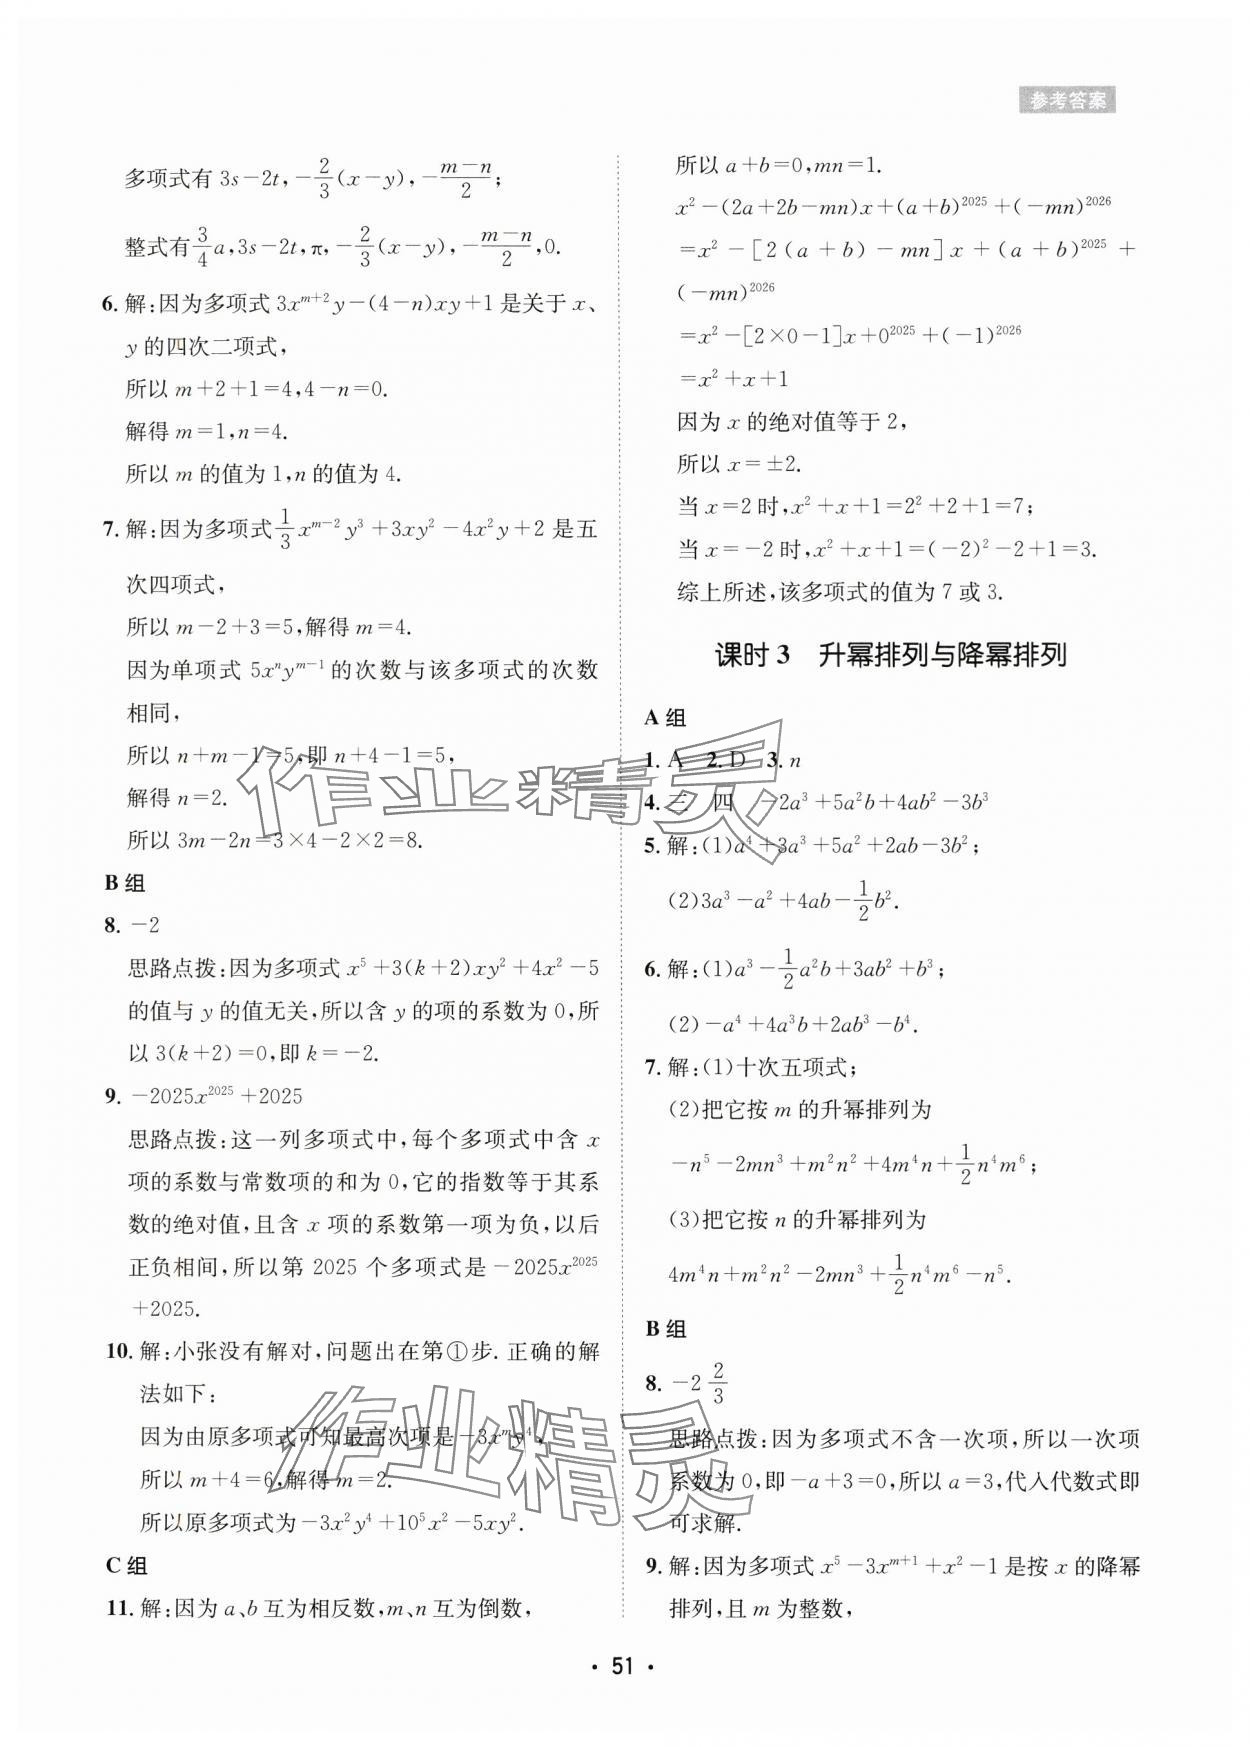 参考答案
多项式有 3s－2t，－$\frac{2}{3}$(x－y)，－$\frac{m－n}{2}$；
整式有$\frac{3}{4}$a，3s－2t，π，－$\frac{2}{3}$(x－y)，－$\frac{m－n}{2}$，0.
6. 解：因为多项式 3x^{m+2}y－(4－n)xy＋1 是关于 x、
y 的四次二项式，
所以 m＋2＋1＝4，4－n＝0.
解得 m＝1，n＝4.
所以 m 的值为 1，n 的值为 4.
7. 解：因为多项式$\frac{1}{3}$x^{m－2}y³＋3xy²－4x²y＋2 是五
次四项式，
所以 m－2＋3＝5，解得 m＝4.
因为单项式 5x^{n}y^{m－1} 的次数与该多项式的次数
相同，
所以 n＋m－1＝5，即 n＋4－1＝5，
解得 n＝2.
所以 3m－2n＝3×4－2×2＝8.
B 组
8. －2
思路点拨：因为多项式 x⁵＋3(k＋2)xy²＋4x²－5
的值与 y 的值无关，所以含 y 的项的系数为 0，所
以 3(k＋2)＝0，即 k＝－2.
9. －2025x^{2025}＋2025
思路点拨：这一列多项式中，每个多项式中含 x
项的系数与常数项的和为 0，它的指数等于其系
数的绝对值，且含 x 项的系数第一项为负，以后
正负相间，所以第 2025 个多项式是－2025x^{2025}
＋2025.
10. 解：小张没有解对，问题出在第①步. 正确的解
法如下：
因为由原多项式可知最高次项是－3x^{m}y⁴，
所以 m＋4＝6，解得 m＝2.
所以原多项式为－3x²y⁴＋10⁵x²－5xy².
C 组
11. 解：因为 a、b 互为相反数，m、n 互为倒数，
所以 a＋b＝0，mn＝1.
x²－(2a＋2b－mn)x＋(a＋b)^{2025}＋(－mn)^{2026}
＝x²－[2(a＋b)－mn]x＋(a＋b)^{2025}＋
(－mn)^{2026}
＝x²－[2×0－1]x＋0^{2025}＋(－1)^{2026}
＝x²＋x＋1
因为 x 的绝对值等于 2，
所以 x＝±2.
当 x＝2 时，x²＋x＋1＝2²＋2＋1＝7；
当 x＝－2 时，x²＋x＋1＝(－2)²－2＋1＝3.
综上所述，该多项式的值为 7 或 3.
课时 3　升幂排列与降幂排列
A 组
1. A　2. D　3. n
4. 三　四　－2a³＋5a²b＋4ab²－3b³
5. 解：(1)a⁴＋3a³＋5a²＋2ab－3b²；
(2)3a³－a²＋4ab－$\frac{1}{2}$b².
6. 解：(1)a³－$\frac{1}{2}$a²b＋3ab²＋b³；
(2)－a⁴＋4a³b＋2ab³－b⁴.
7. 解：(1)十次五项式；
(2)把它按 m 的升幂排列为
－n⁵－2mn³＋m²n²＋4m⁴n＋$\frac{1}{2}$n⁴m⁶；
(3)把它按 n 的升幂排列为
4m⁴n＋m²n²－2mn³＋$\frac{1}{2}$n⁴m⁶－n⁵.
B 组
8. －2$\frac{2}{3}$
思路点拨：因为多项式不含一次项，所以一次项
系数为 0，即－a＋3＝0，所以 a＝3，代入代数式即
可求解.
9. 解：因为多项式 x⁵－3x^{m+1}＋x²－1 是按 x 的降幂
排列，且 m 为整数，
作业精灵
作业精灵
· 51 ·